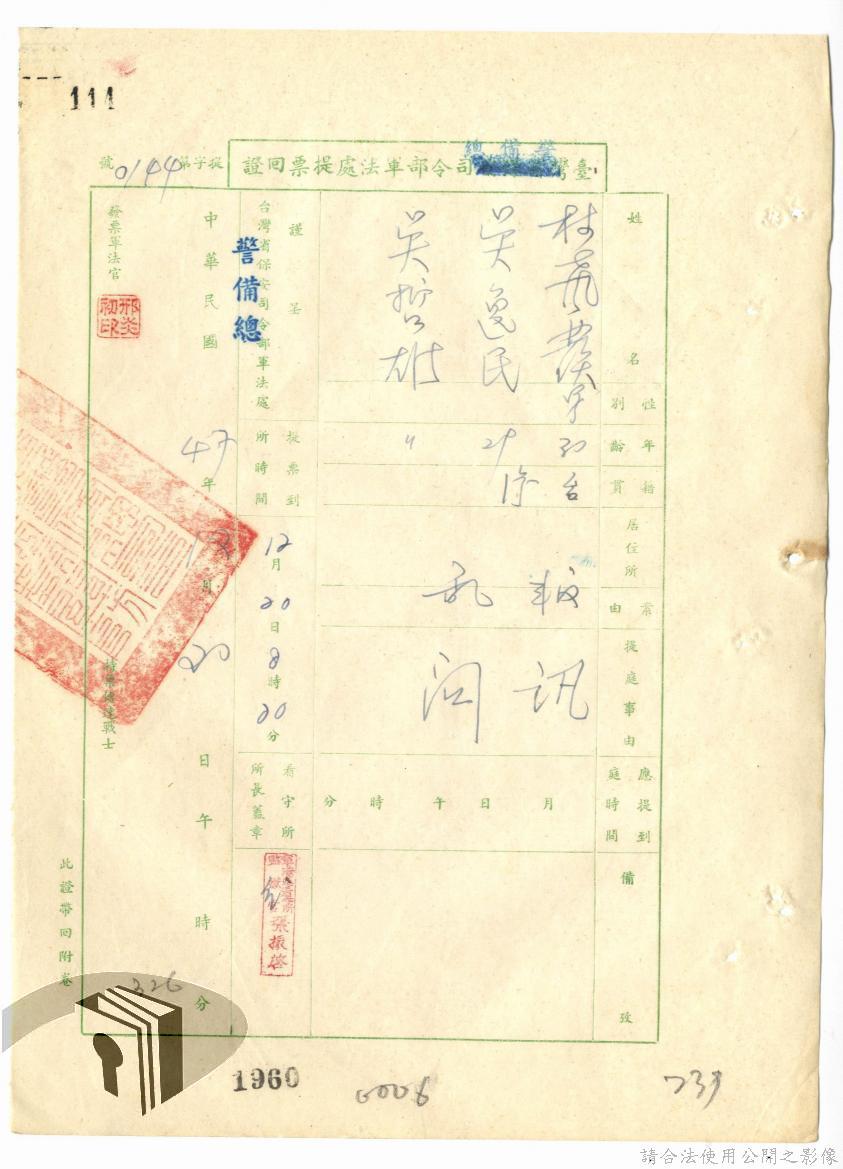 111
提字第0144號
臺灣警備總司令部軍法處提票回證
姓名
吳逸民
吳哲雄
性別
年齡
30
29
〃
籍貫
台
居住所
案由
叛亂
提庭事由
訊問
應提到庭時間
月 日 午 時 分
備攷
謹呈
台灣省保安司令部軍法處
警備總
提票到所時間
12月20日8時20分
看守所所長蓋章
張振啓
中華民國47年12月20日午時分
發票軍法官
邢炎初印
此證帶回附卷
326
1960
0006
739
請合法使用公開之影像